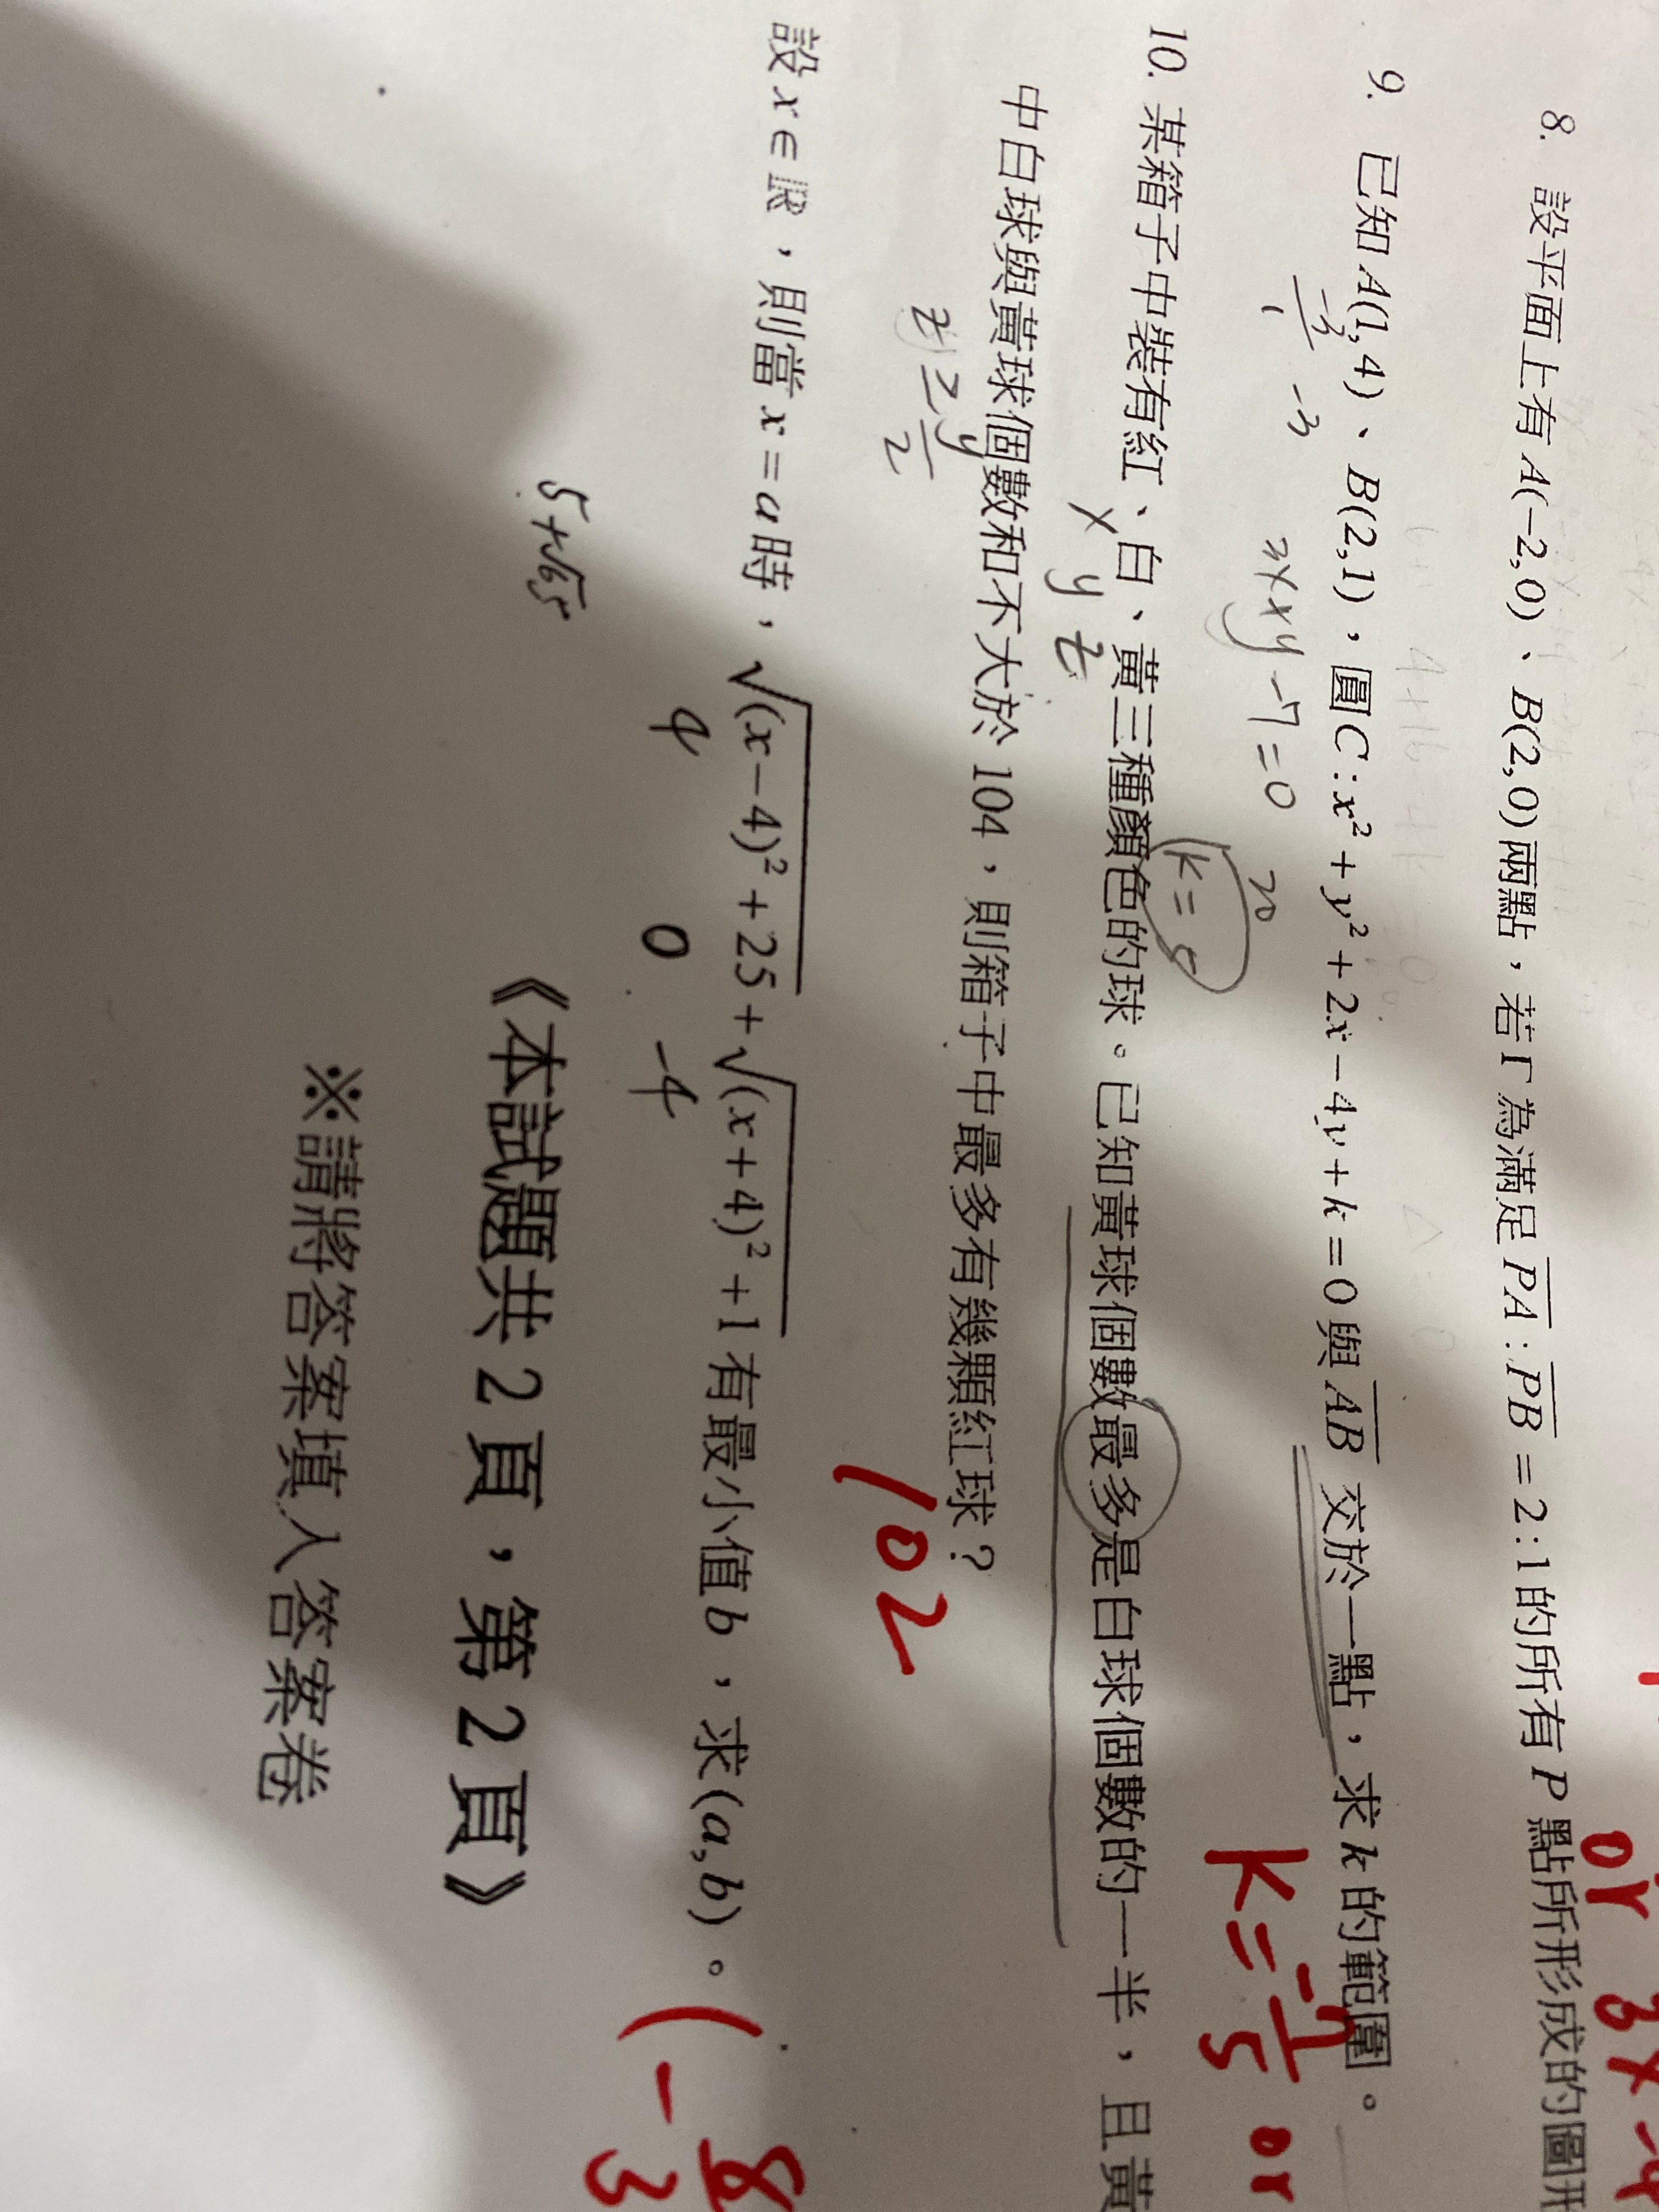 8. 設平面上有 A(−2,0)、B(2,0)兩點，若 Γ 為滿足 PA : PB = 2 : 1 的所有 P 點所形成的圖形
or
9. 已知 A(1,4)、B(2,1)，圓 C : x² + y² + 2x − 4y + k = 0 與 AB 交於一點，求 k 的範圍。
-3/1 -3
k = -7/5 or
20
k=
10. 某箱子中裝有紅、白、黃三種顏色的球。已知黃球個數最多是白球個數的一半，且黃
x y z
中白球與黃球個數和不大於 104，則箱子中最多有幾顆紅球？
102
z ≥ y/2
設 x ∈ ℝ，則當 x = a 時，√((x−4)² + 25) + √((x+4)² + 1) 有最小值 b，求 (a,b)。
(-8/3
4 0 -4
5+√65
《本試題共 2 頁，第 2 頁》
※請將答案填入答案卷